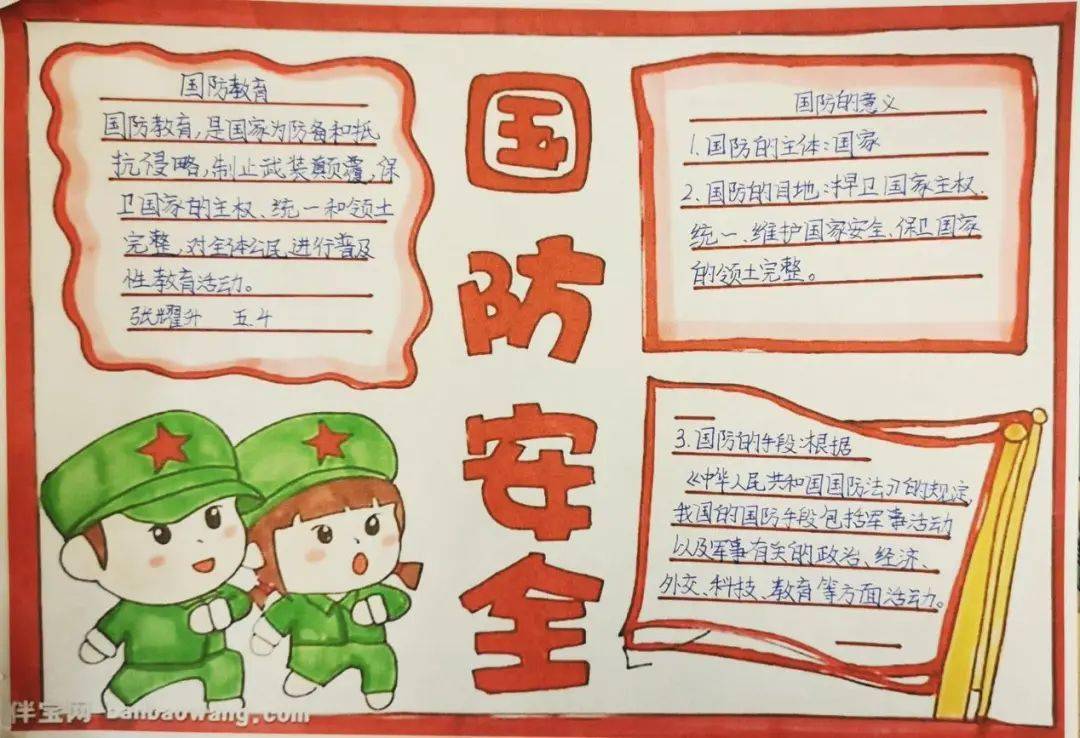 国防教育
国防教育,是国家为防备和抵
抗侵略,制止武装颠覆,保
卫国家的主权、统一和领土
完整,对全体公民,进行普及
性教育活动。
张耀升 五.4
国防安全
国防的意义
1.国防的主体:国家
2.国防的目地:捍卫国家主权、
统一、维护国家安全、保卫国家
的领土完整。
3.国防的手段:根据
《中华人民共和国国防法》的规定,
我国的国防手段包括军事活动
以及军事有关的政治、经济、
外交、科技、教育等方面活动。
伴宝网-banbaowang.com